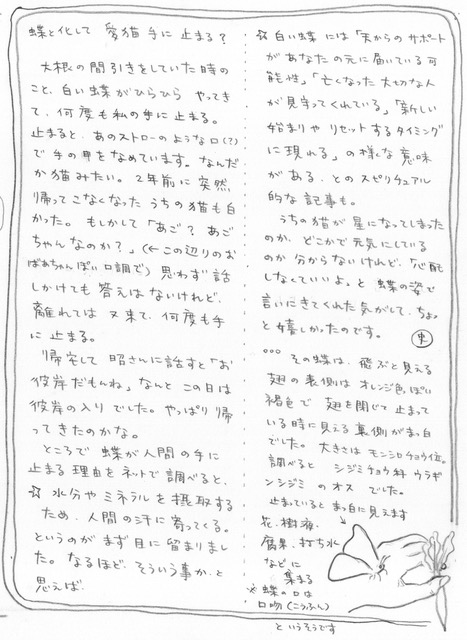 蝶と化して 愛猫 手に 止まる？
大根の間引きをしていた時の
こと、白い蝶がひらひら やってき
て、何度も私の手に止まる。
止まると、あのストローのような口(?)
で手の甲をなめています。なんだ
か猫みたい。2年前に突然
帰ってこなくなった うちの猫も白
かった。もしかして「あご？ あご
ちゃんなのか？」(←この辺りのお
ばあちゃんぽい口調で) 思わず話
しかけても 答えは ないけれど、
離れては 又来て、何度も手
に止まる。
帰宅して 昭さんに話すと「お
彼岸だもんね」なんと この日は
彼岸の入り でした。やっぱり帰
ってきたのかな。
ところで 蝶が人間の手に
止まる理由をネットで調べると、
☆ 水分やミネラルを摂取する
ため、人間の汗に寄ってくる。
というのが まず目に留まりまし
た。なるほど、そういう事か、と
思えば、
☆ 白い蝶 には「天からのサポート
があなたの元に届いている可
能性」「亡くなった大切な人
が見守ってくれている」「新しい
始まりや リセットするタイミング
に現れる」の様な意味
がある、とのスピリチュアル
的な記事も。
うちの猫が星になってしまった
のか、どこかで元気にしている
のか分からないけれど、「心配
しなくていいよ。」と 蝶の姿で
言いにきてくれた気がして、ちょっ
と嬉しかったのです。 史
°°° その蝶は、飛ぶと見える
翅の表側は オレンジ色っぽい
褐色で 翅を閉じて止まって
いる時に見える裏側がまっ白
でした。大きさは モンシロチョウ位。
調べると シジミチョウ科 ウラギ
ンシジミ の オス でした。
止まっていると まっ白に見えます
花、樹液、
腐果、打ち水
などに
集まる
※ 蝶の口は
口吻(こうふん)
というそうです